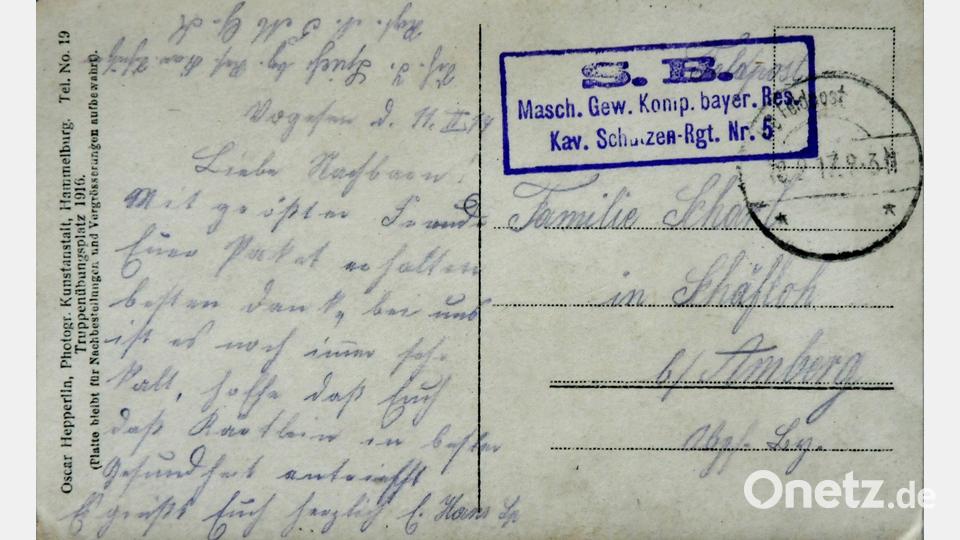 Vogesen d. 11. II. 17
Liebe Nachbarn!
Mit größter Freude
Euer Packet erhalten
besten Dank, bei uns
ist es noch immer sehr
kalt, hoffe daß Euch
daß Kärtlein in bester
Gesundheit antrifft
Es grüßt Euch herzlich E. Hans
Feldpost
S. B.
Masch. Gew. Komp. bayer. Res.
Kav. Schützen-Rgt. Nr. 5
Feldpost
Familie Scharl
in Schäfloh
b/ Amberg
Oscar Hepperlin, Photogr. Kunstanstalt, Hammelburg. Tel. No. 19
Truppenübungsplatz 1916.
(Platte bleibt für Nachbestellungen und Vergrösserungen aufbewahrt).
Onetz.de